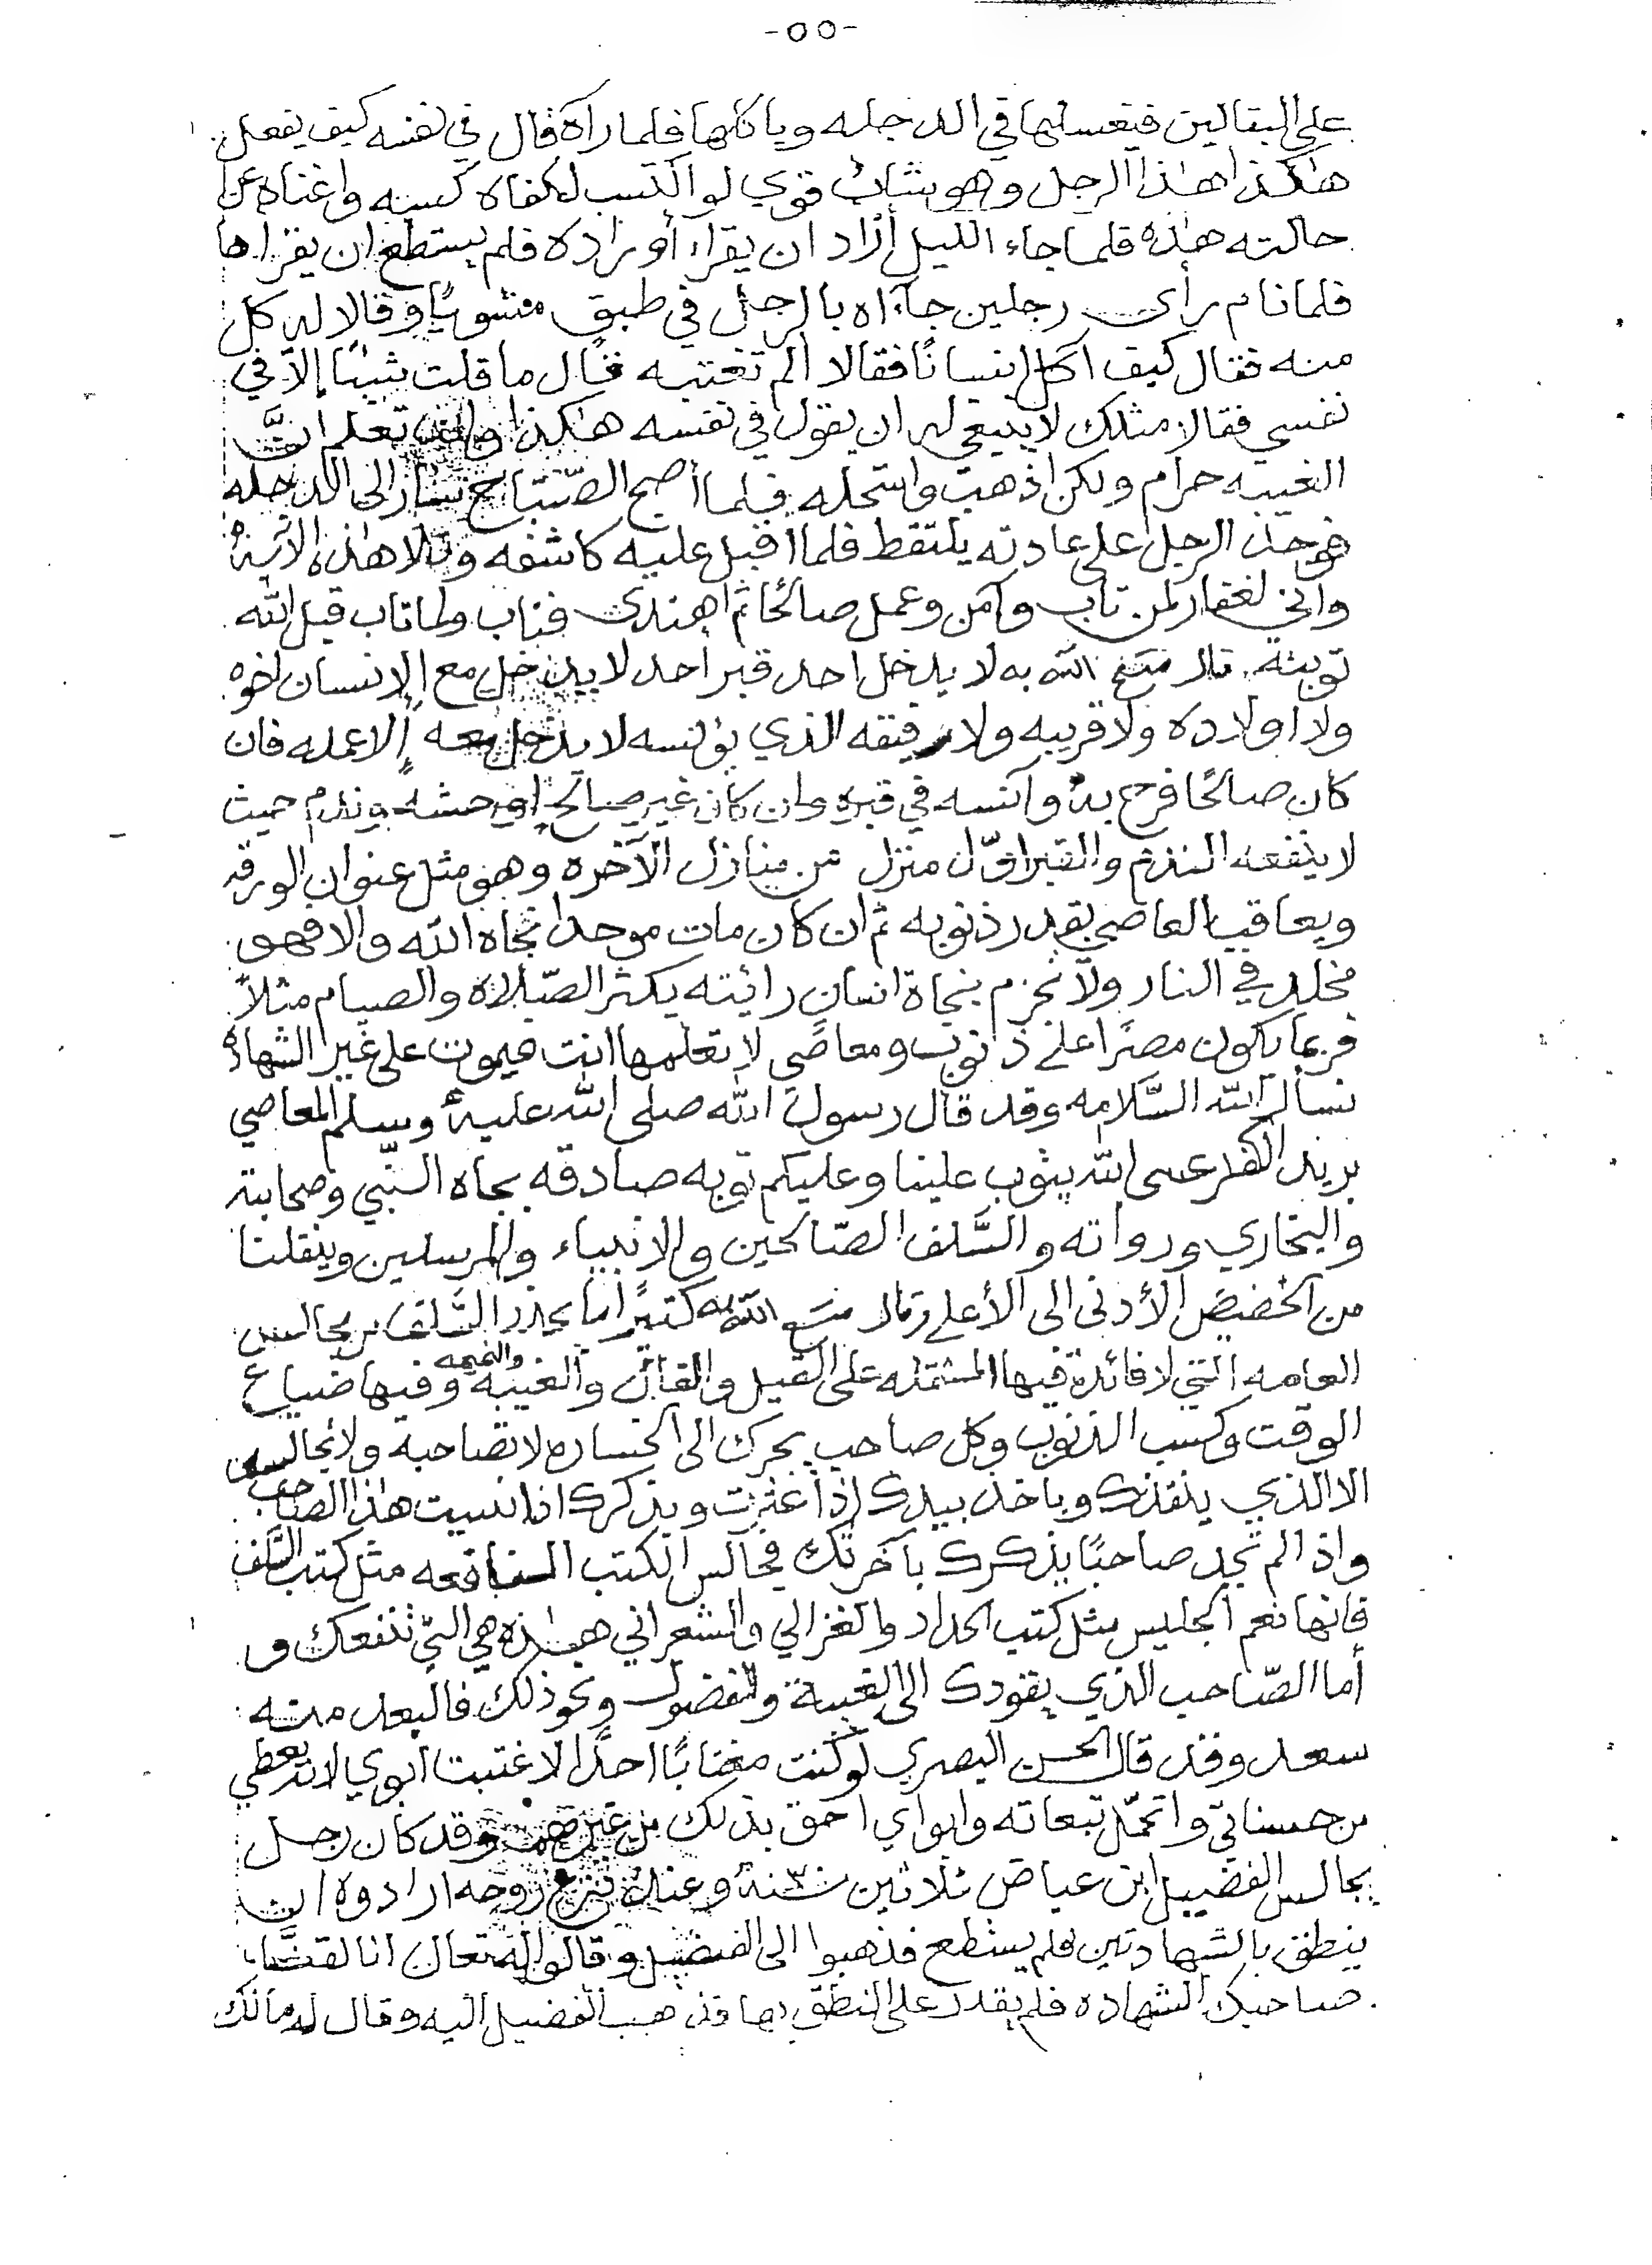 -٥٥-
على البقالين فيغسلها في الدجله ويأكلها فلما رآه قال في نفسه كيف يفعل
هٰكذا هٰذا الرجل وهو شاب قوي لو اكتسب لكفاه كسبه واغناه عن
حالته هٰذه فلما جاء الليل أراد ان يقراء أوراده فلم يستطع ان يقراها
فلما نام رأى رجلين جاءاه بالرجل في طبق مشويًا وقالا له كل
منه فقال كيف آكل انسانًا فقالا الم تغتبه فقال ما قلت شيئا إلا في
نفسي فقالا مثلك لا ينبغي له ان يقول في نفسه هٰكذا وانت تعلم انَّ
الغيبه حرام ولكن اذهب واستحله فلما أصبح الصّباح سار الى الدجله
فوجد الرجل على عادته يلتقط فلما اقبل عليه كاشفه وتلا هٰذه الآية
واني لغفار لمن تاب وآمن وعمل صالحًا ثم اهتدى فتاب ولما تاب قبل الله
توبته. قال متع الله به لا يدخل احد قبر أحد لا يدخل مع الإنسان اخوه
ولا اولاده ولا قريبه ولا رفيقه الذي يؤنسه لا يدخل معه إلا عمله فان
كان صالحًا فرح به وآنسه في قبره وان كان غير صالح اوحشه وندم حيث
لا ينفعه الندم والقبر اوّل منزل من منازل الآخره وهو مثل عنوان الورقه
ويعاقب العاصي بقدر ذنوبه ثم ان كان مات موحدا نجاه الله والا فهو
مخلد في النار ولا نجزم بنجاة انسان رائيته يكثر الصّلاة والصيام مثلاً
فربما يكون مصرًا على ذنوب ومعاصي لا تعلمها انت فيموت على غير الشهاده
نسأل الله السّلامه وقد قال رسول الله صلى الله عليه وسلم المعاصي
بريد الكفر عسى الله يتوب علينا وعليكم توبه صادقه بجاه النّبي وصحابته
والبخاري ورواته والسَّلف الصّالحين والانبياء والمرسلين وينقلنا
من الحضيض الأدنى الى الأعلى وقال متع الله به كثيرًا ما يحذر السَّلف من مجالس
العامه التي لا فائدة فيها المشتمله على القيل والقال والغيبة والنميمه وفيها ضياع
الوقت وكسب الذنوب وكل صاحب يجرك الى الخساره لا تصاحبه ولا تجالسه
الا الذي ينقذك وياخذ بيدك إذا عثرت ويذكرك اذا نسيت هٰذا الصاحب
واذا لم تجد صاحبًا يذكرك بآخرتك فجالس الكتب النافعه مثل كتب السَّلف
فانها نعم الجليس مثل كتب الحداد والغزالي والشعراني هٰذه هي التي تنفعك و
أما الصّاحب الذي يقودك الى الغيبة والفضول ونحو ذلك فالبعد منه
سعد وقد قال الحسن البصري لو كنت مغتابًا احدًا لاغتبت ابوي لانه يعطي
من حسناتي واتحمّل تبعاته وابواي احق بذلك من غيرهما وقد كان رجل
يجالس الفضيل ابن عياض ثلاثين سنة وعند نزع روحه ارادوه ان
ينطق بالشهادتين فلم يستطع فذهبوا الى الفضيل وقالوا له تعال انا لقنا
صاحبك الشهاده فلم يقدر على النطق بها فذهب الفضيل اليه وقال له مالك